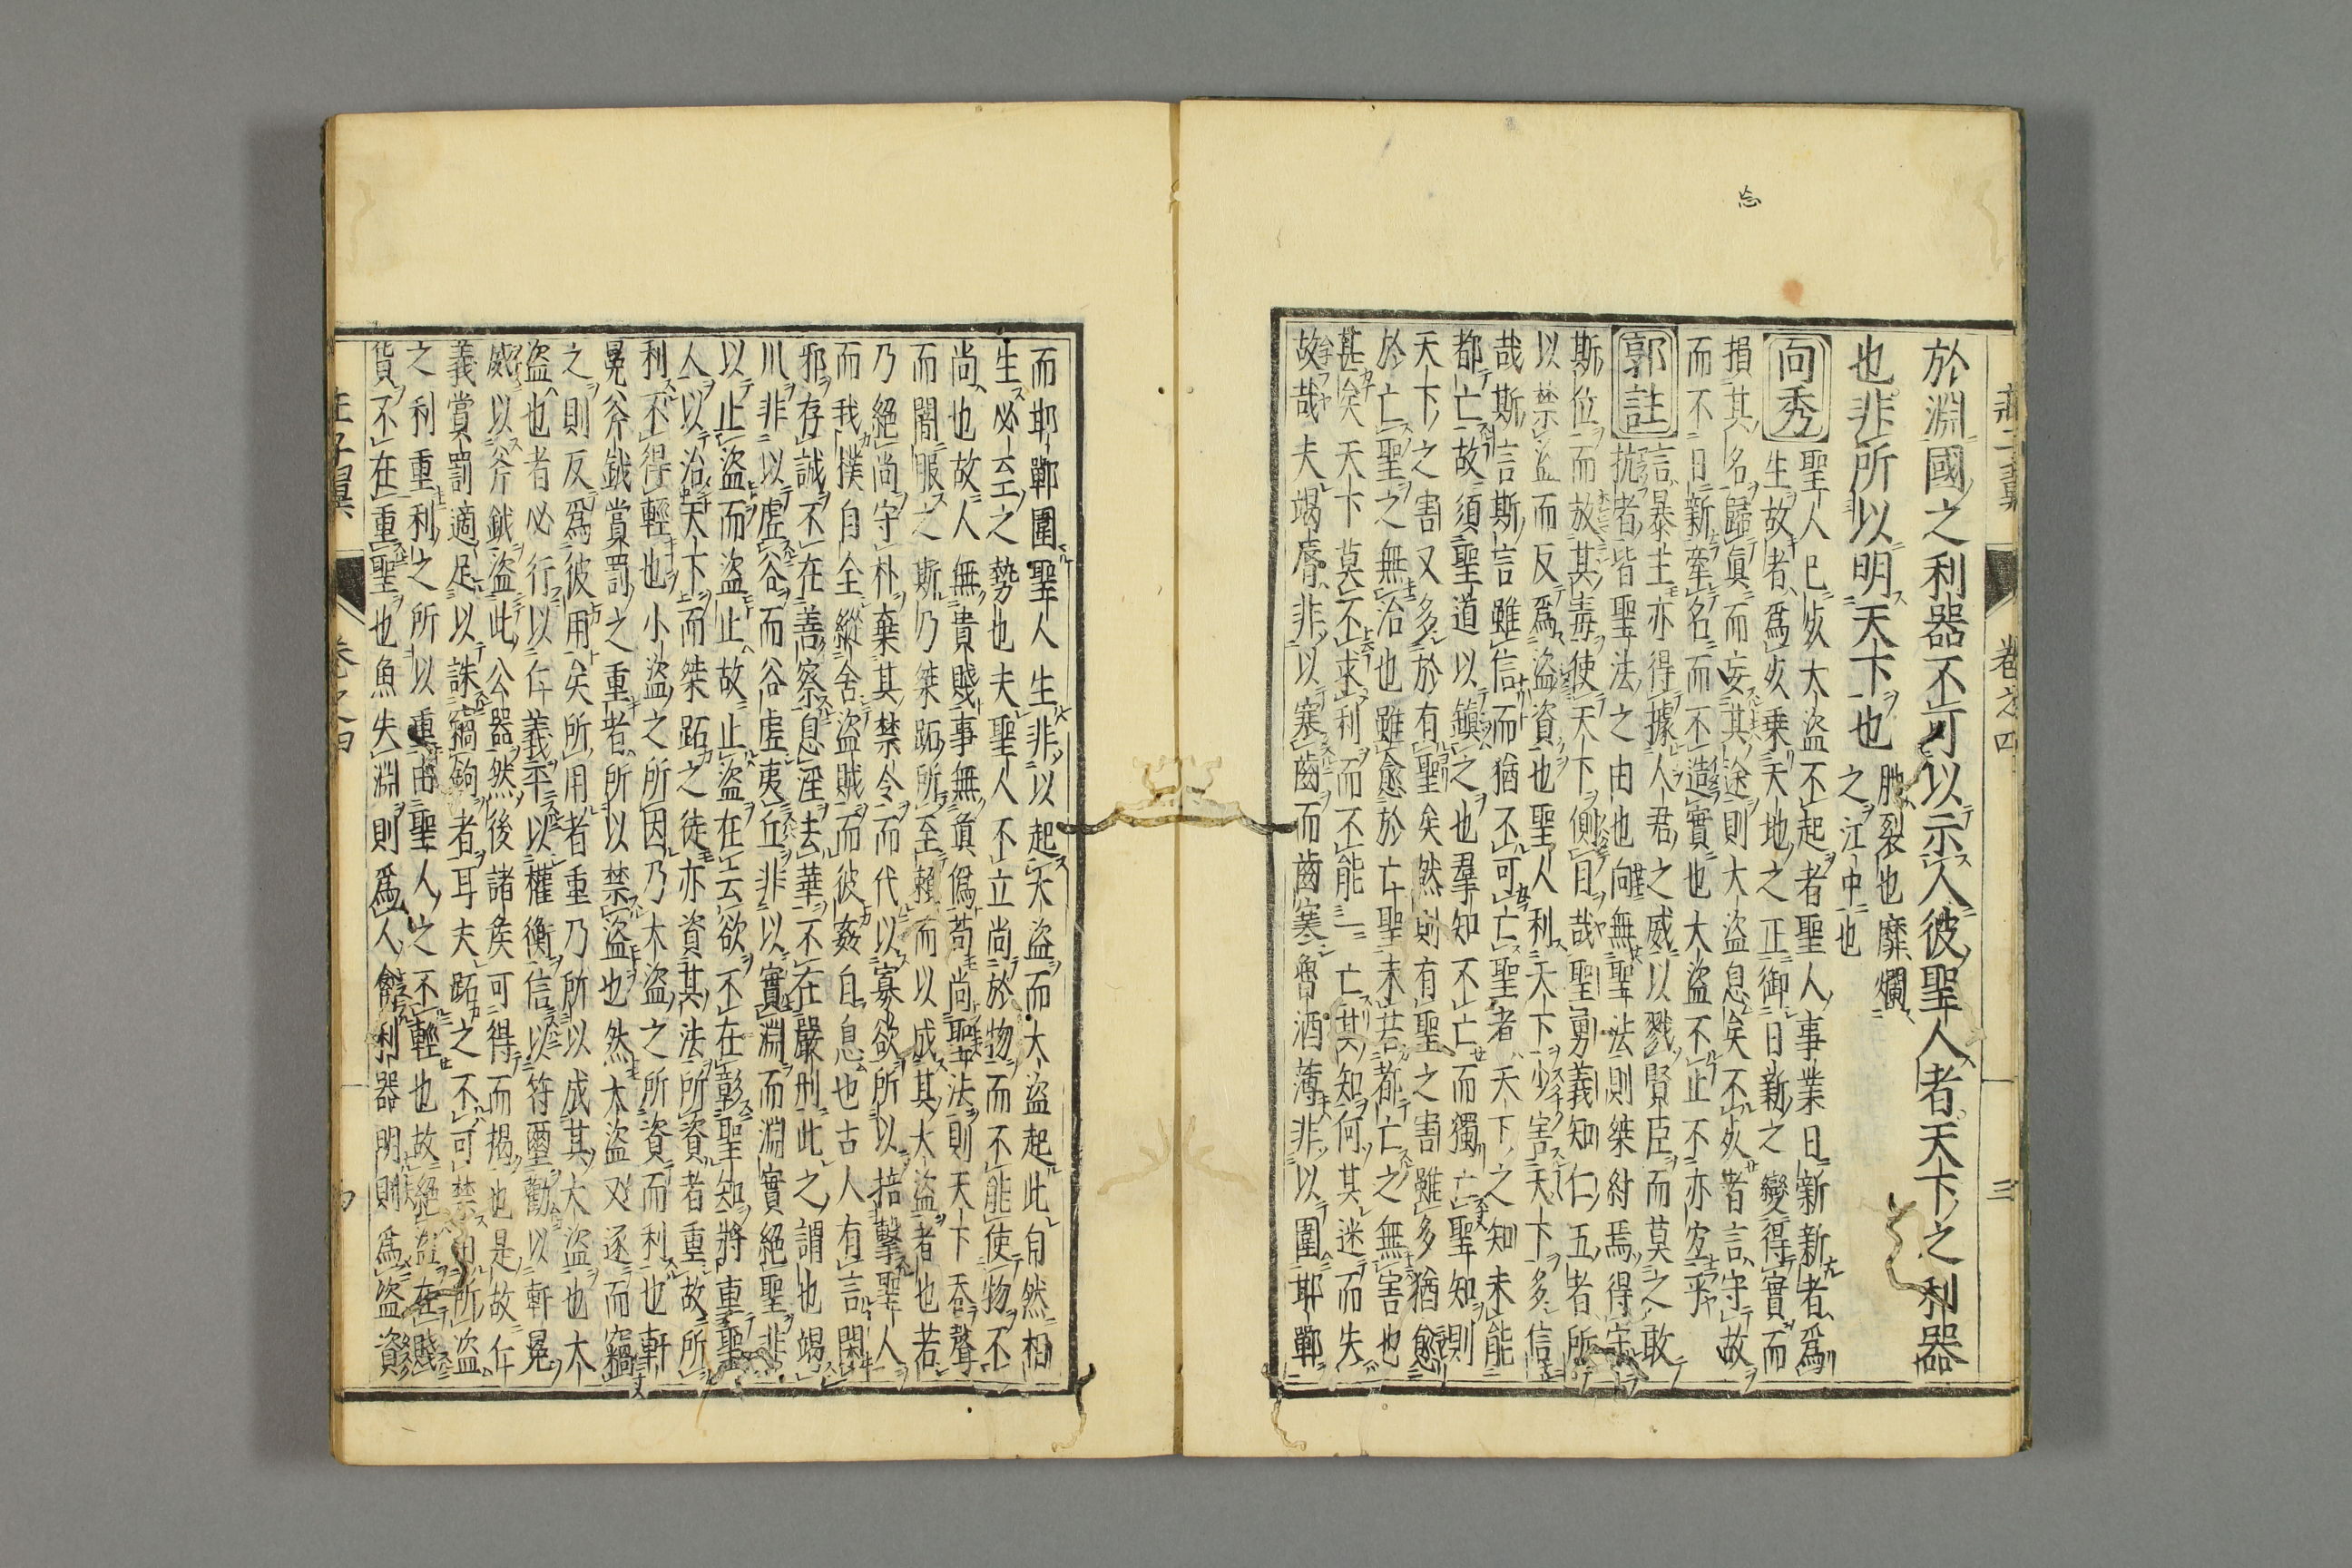 卷之四
三
於淵國之利器不可以示人彼聖人者天下之利器
也非所以明天下也
胣裂也靡爛
之江中也
向秀
聖人已死大盗不起者聖人事業日新新者爲
生故者爲死乗天地之正御日新之變得實而
損其名歸眞而妄其途則大盗息矣不死者言守故
而不日新牽名而不造實也大盗不止不亦宜乎
郭註
言暴主亦得據人君之威以戮賢臣而莫之敢
抗者皆聖法之由也向無聖法則桀紂焉得守
斯位而放其毒使天下側目哉聖勇義知仁五者所
以禁盗而反爲盗資也聖人利天下少害天下多信
哉斯言斯言雖信而猶不可亡聖者天下之知未能
都亡故須聖道以鎮之也羣知不亡而獨亡聖知則
天下之害又多於有聖矣然則有聖之害雖多猶愈
於亡聖之無治也雖愈於亡聖未若都亡之無害也
甚矣天下莫不求利而不能一亡其知何其迷而失
故哉夫竭唇非以寒齒而齒寒魯酒薄非以圍邯鄲
而邯鄲圍聖人生非以起大盗而大盗起此自然相
生必至之勢也夫聖人不立尚於物而不能使物不
尚也故人無貴賤事無眞僞苟尚聖法則天下吞聲
而闇服之斯乃桀跖所至賴而以成其大盗者也若
乃絕尚守朴棄其禁令而代以寡欲所以掊擊聖人
而我樸自全縱舍盗賊而彼姦自息也古人有言閑
邪存誠不在善察息淫去華不在嚴刑此之謂也竭
川非以虛谷而谷虛夷丘非以實淵而淵實絕聖非
以止盗而盗止故止盗在去欲不在彰聖知將重聖
人以治天下而桀跖之徒亦資其法所資者重故所
利不得輕也小盗之所因乃大盗之所資而利也軒
冕斧鉞賞罰之重者所以禁盗也然大盗又逐而竊
之則反爲彼用矣所用者重乃所以成其大盗也大
盗也者必行以仁義平以權衡信以符璽勸以軒冕
威以斧鉞盗此公器然後諸侯可得而揭也是故仁
義賞罰適足以誅竊鉤者耳夫跖之不可禁由所盗
之利重利之所以重由聖人之不輕也故絕盗在賤
貨不在重聖也魚失淵則爲人禽利器明則爲盗資